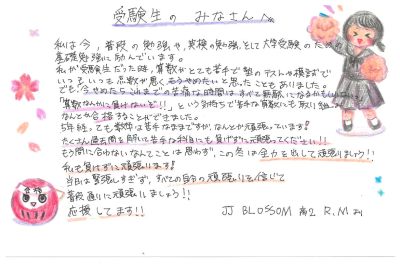 受験生の みなさんへ
私は今、普段の勉強や、英検の勉強、そして大学受験のため
基礎勉強に励んでいます。
私が受験生だった時、算数がとても苦手で塾のテストや模試まで
いつもいつも点数が悪く、もうやめたいと思ったこともありました。
でも、今やめたらこれまでの苦痛な時間はすべて無駄になるかもしれない
「算数なんかに負けないぞ!!」という気持ちで苦手な算数にも取り組み
なんとか合格することができました。
5年経っても数学は苦手なままですが、なんとか頑張っています!
たくさん過去問を解いて苦手な科目にも負けずに頑張ってください!!
もう間に合わないなんてことは思わず、この冬は全力を出して頑張りましょう!!
私も負けずに頑張ります!
当日は緊張しすぎず、すべての自分の頑張りを信じて
普段通りに頑張りましょう!!
応援してます!!
JJ BLOSSOM 高2 R.Mより
合格